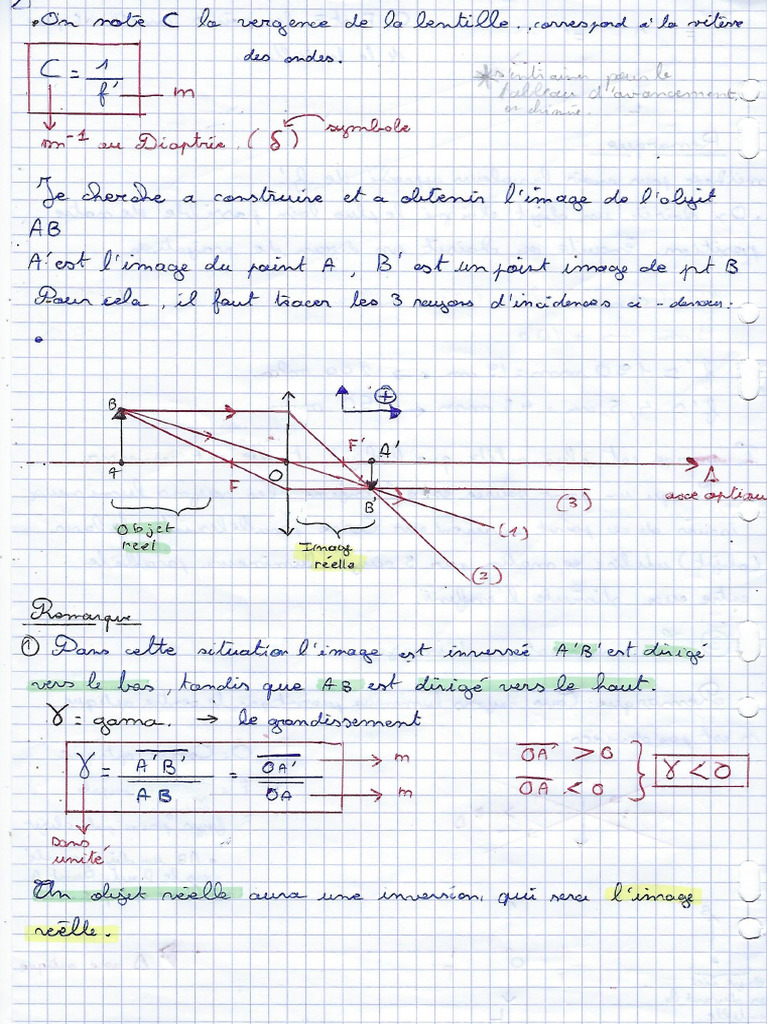 . On note C la vergence de la lentille., correspond à la vitesse
des ondes.
C = 1 / f' → m
* s'entrainer pour le
tableau d'avancement
en chimie.
m⁻¹ ou Dioptrie. (δ) symbole
Je cherche a construire et a obtenir l'image de l'objet
AB
A' est l'image du point A, B' est un point image de pt B
Pour cela, il faut tracer les 3 rayons d'incidences ci-dessous:
+
B F' A'
A F O Δ
axe optique
B' (3)
Objet
réel
(1)
Image
réelle
(2)
Remarque
① Dans cette situation l'image est inversée A'B' est dirigé
vers le bas, tandis que AB est dirigé vers le haut.
γ = gama. → le grandissement
γ = A'B' / AB = OA' / OA → m → m
OA' > 0
OA < 0 } γ < 0
sans
unité
Un objet réelle aura une inversion, qui sera l'image
réelle.